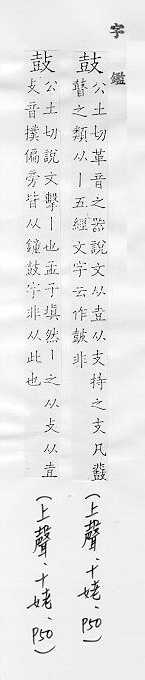 字鑑
鼓 公土切革音之器說文从壴从支持之支凡鼖鼛之類从丨五經文字云作皷非
(上聲、十姥、P50)
鼔 公土切說文擊丨也孟子塡然丨之从攴从壴攴音撲偏旁皆从鐘鼓字非从此也
(上聲、十姥、P50)